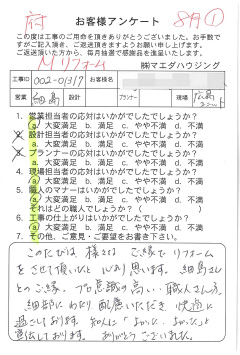 府
8月①
お客様アンケート
この度は工事のご用命を頂きありがとうございました。お手数で
すがご記入頂き、ご返送頂きますようお願い申し上げます。
ご返送頂いた方から、毎月抽選で感謝品を進呈いたします。
Mリフォーム
㈱マエダハウジング
工事ID 002-01317 お客様名
営業 細島 設計 プランナー 現場 広島
1. 営業担当者の応対はいかがでしたでしょうか?
a. 大変満足 b. 満足 c. やや不満 d. 不満
2. 設計担当者の応対はいかがでしたでしょうか?
a. 大変満足 b. 満足 c. やや不満 d. 不満
3. プランナーの応対はいかがでしたでしょうか?
a. 大変満足 b. 満足 c. やや不満 d. 不満
4. 現場担当者の応対はいかがでしたでしょうか?
a. 大変満足 b. 満足 c. やや不満 d. 不満
5. 職人のマナーはいかがでしたでしょうか?
a. 大変満足 b. 満足 c. やや不満 d. 不満
それはどの職人でしょうか( )
6. 工事の仕上がりはいかがでしたでしょうか?
a. 大変満足 b. 満足 c. やや不満 d. 不満
7. その他、ご意見・ご要望をお書き下さい。
このたびは 様とは ご縁で リフォーム
をさせて頂いたと 思います。細島さん
とのご縁、プロ意識の高い、職人さん方、
細部にわたり 配慮いただき 快適に
過ごしております。知人に「よかった、よかった」と
宣伝しております。ありがとうございました。